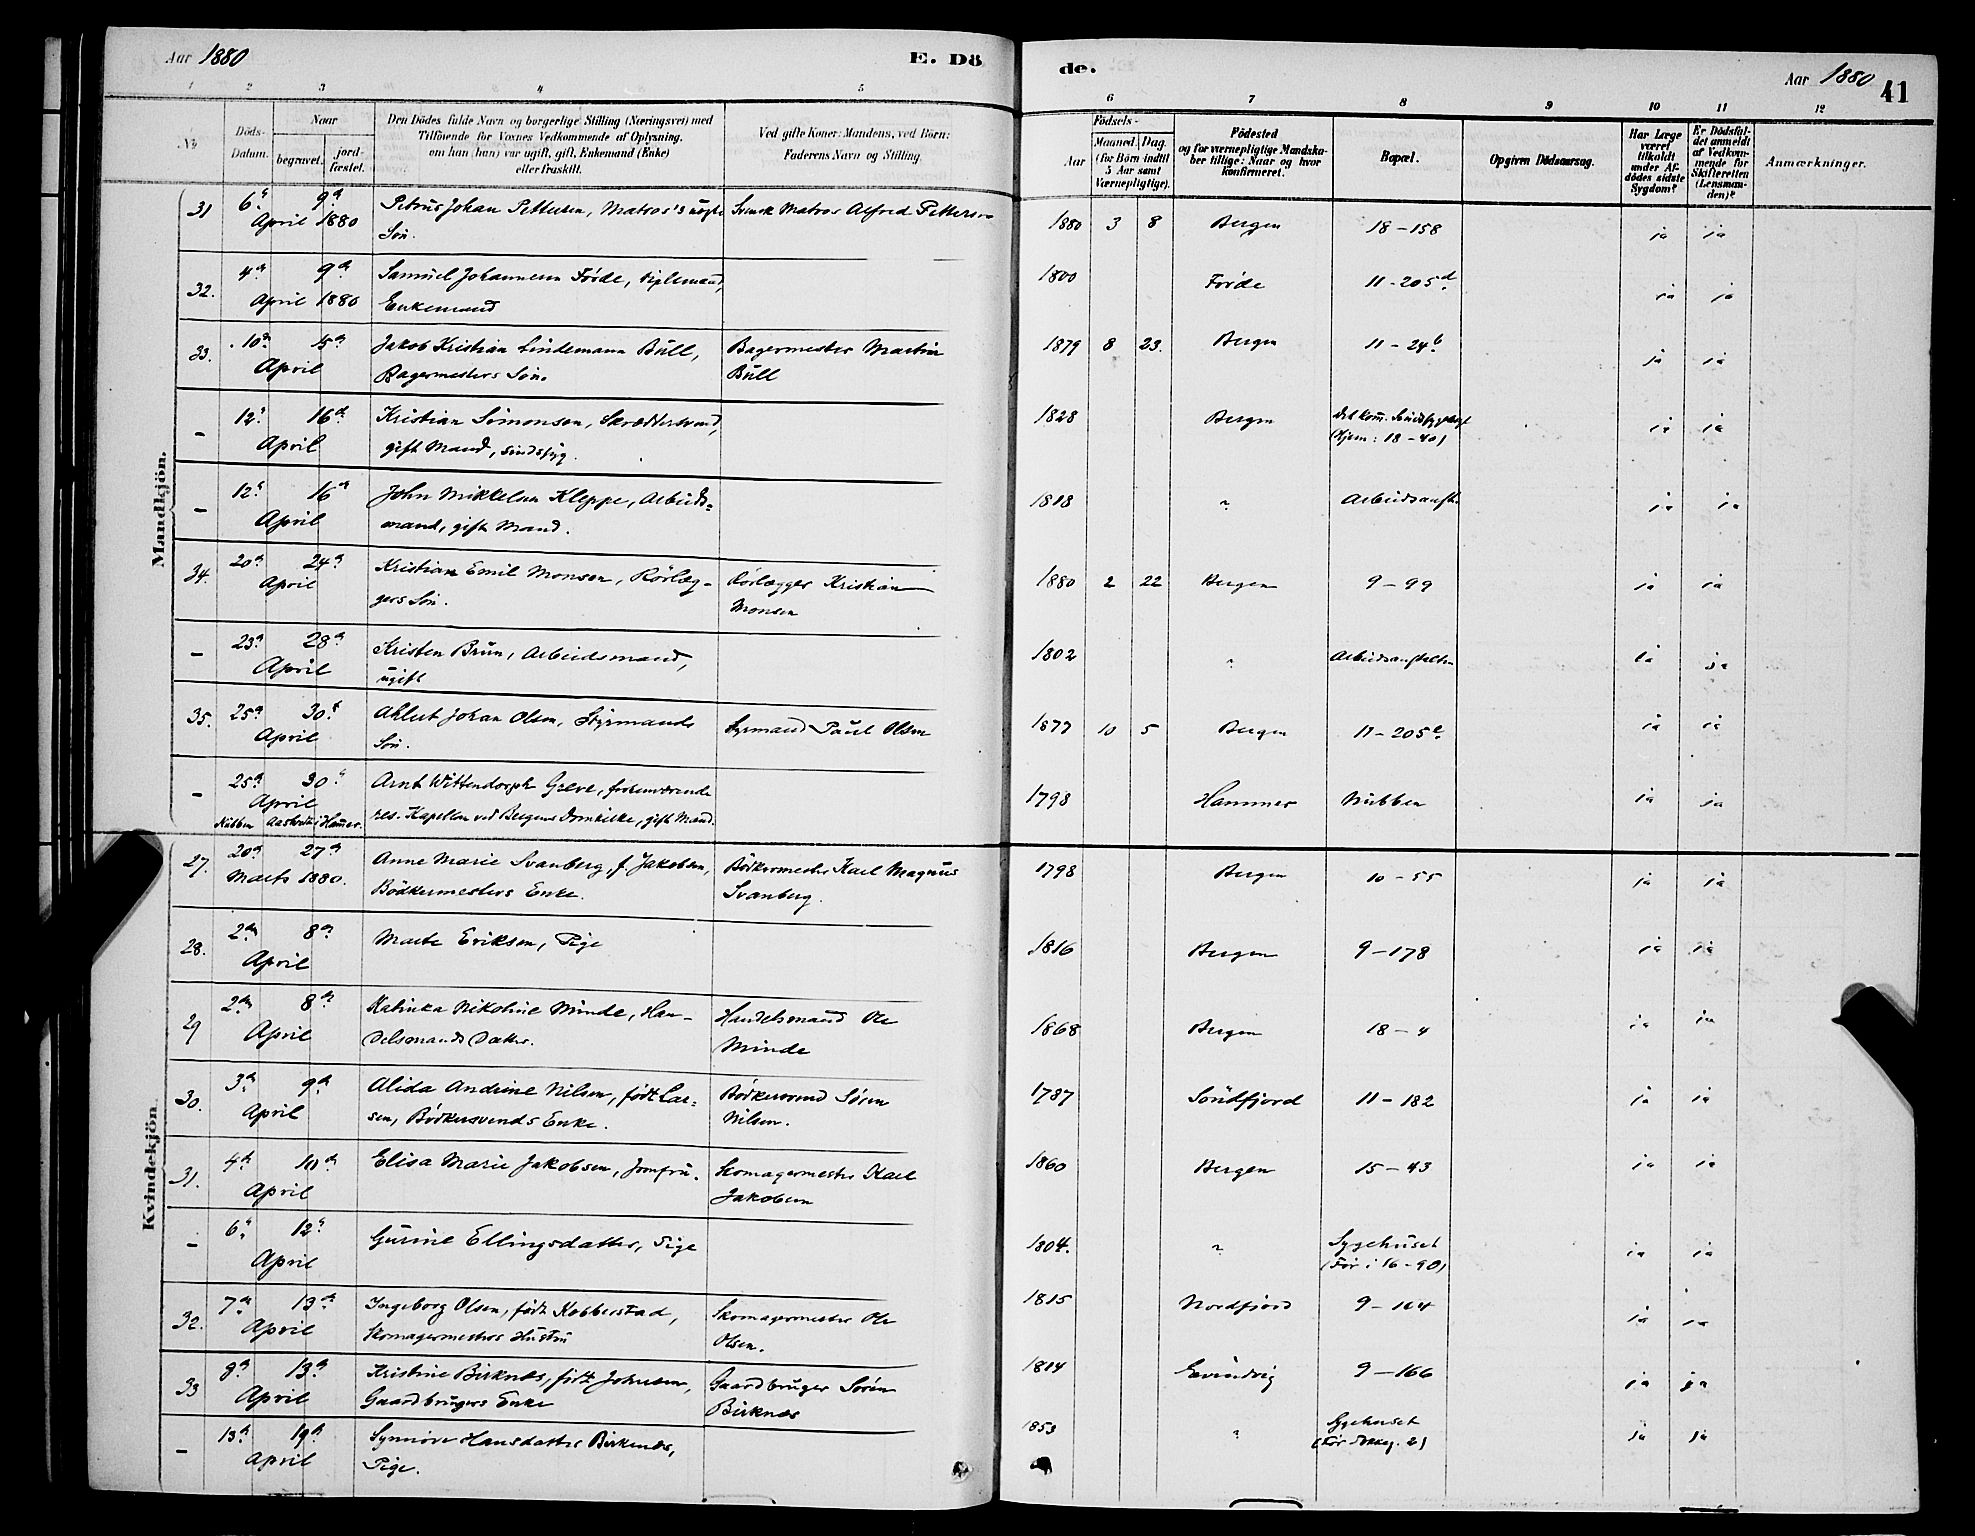 Aar 1880
E. Dö
de.
Aar 1880
41
1 2 3 4 5 6 7 8 9 10 11 12
No
Döds-Datum.
Naar
begravet.
jordfæstet.
Den Dödes fulde Navn og borgerlige Stilling (Næringsvei) med
Tilföiende for Voxnes Vedkommende af Oplysning,
om han (hun) var ugift, gift, Enkemand (Enke)
eller fraskilt.
Ved gifte Koner: Mandens, ved Börn:
Faderens Navn og Stilling.
Födsels-
Aar
Maaned. Dag.
(for Börn indtil
5 Aar samt
Værnepligtige).
Födested
og for værnepligtige Mandska-
ber tillige: Naar og hvor
konfirmeret.
Bopæl.
Opgiven Dödsaarsag.
Har Læge
været
tilkaldt
under Af-
dödes sidste
Sygdom?
Er Dödsfal-
det anmeldt
af Vedkom-
mende for
Skifteretten
(Lensman-
den)?
Anmærkninger.
Mandkjön.
31 6. 9. Petrus Johan Pettersen, Matros's Svensk Matros Alfred Petterson 1880 3 8 Bergen 18-158 ja ja
April 1880 Sön.
32. 4de 9de Samuel Johannesen Förde, Enkemand 1800 Förde 11-205d ja ja
April 1880
33. 10de 15de Jakob Kristian Lindemann Bull, Bagermester Martin 1879 8 23. Bergen 11-24b ja ja
April Bagermesters Sön. Bull
- 12. 16de Kristian Simonsen, Skræddersvend, 1828 Bergen ja ja
April gift Mand, sindssyg. (Hjem: 18-40)
- 12. 16de John Mikkelsen Kleppe, Arbeids- 1818 " Arbeidsanst. ja ja
April mand, gift Mand.
34. 20de 24de Kristian Emil Monsen, Rörlæg- Rörlægger Kristian 1880 2 22 Bergen 9-99 ja ja
April gers Sön. Monsen
- 23de 28de Kristen Brun, Arbeidsmand, 1802 " Arbeidsanstalten ja ja
April ugift
35. 25de 30. Ahlert Johan Olsen, Styrmands Styrmand Paul Olsen 1877 10 5 Bergen 11-205e ja ja
April Sön.
- 25de 30. Arnt Wittendorph Greve, forhenværende 1798 Hammer Nubben ja ja
April res. Kapellan ved Bergens Domkirke, gift Mand.
Nubben Hamer.
Kvindekjön.
27. 20de 27de Anne Marie Svanberg, f. Jakobsen, Bödkermester Karl Magnus 1798 Bergen 10-55 ja ja
Marts 1880. Bödkermesters Enke. Svanberg.
28. 2den 8de Marte Eriksen, Pige 1816 Bergen 9-178 ja ja
April
29 2den 8de Katinka Nikoline Minde, Han- Handelsmand Ole 1868 Bergen 18-4 ja ja
April delsmands Datter. Minde
30. 3de 9de Alida Andrine Nilsen, födt Lar- Bödkersvend Sören 1787 Söndfjord 11-182 ja ja
April sen, Bödkersvends Enke. Nilsen.
31. 4de 10de Elisa Marie Jakobsen, Jomfru. Skomagermester Karl 1860 Bergen 15-43 ja ja
April Jakobsen
- 6. 12. Gurine Ellingsdatter, Pige 1804. " Sygehuset ja ja
April (För i 16-90)
32. 7de 13de Ingeborg Olsen, födt Kobberstad, Skomagermester Ole 1815 Nordfjord 9-164 ja ja
April Skomagermesters Hustru Olsen.
33 8de 13de Kristine Birknes, födt Johnsen, Gaardbruger Sören 1814 Evindvig 9-166 ja ja
April Gaardbrugers Enke Birknes
- 13de 19de Synnöve Hansdatter Birkenes, 1853 " Sygehuset ja ja
April Pige.